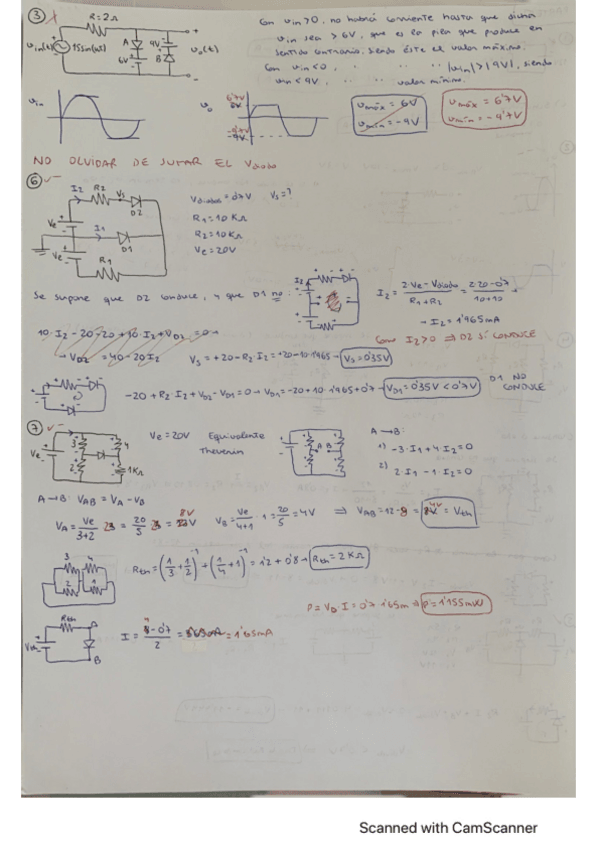 ③ X R = 2Ω
Vin(t) 15 sin(ωt) A 4V B 6V vo(t)
Con vin>0, no habrá corriente hasta que dicho
vin sea > 6V, que es la pila que produce en
sentido contrario. Siendo éste el valor máximo.
Con vin<0, " " |vin|>|9V|, siendo
vin < 9V, " " valor mínimo.
vin vo 6'7V -9'7V
vmáx = 6V
vmín = -9V
vmáx = 6'7V
vmín = -9'7V
NO OLVIDAR DE SUMAR EL Vdiodo
⑥ ✓-
I2 R2 Vs D2
Ve I1 D1
Ve R1
Vdiodo = 0'7V Vs = ?
R1 = 10 KΩ
R2 = 10 KΩ
Ve = 20V
Se supone que D2 conduce, y que D1 no:
I2 = (2·Ve - Vdiodo)/(R1 + R2) = (2·20 - 0'7)/(10+10) →
→ I2 = 1'965mA
Como I2 > 0 ⇒ D2 SÍ CONDUCE
10·I2 - 20 - 20 + 10·I2 + VD2 = 0 →
→ VD2 = 40 - 20I2
Vs = +20 - R2·I2 = +20 - 10·1'965 → Vs = 0'35V
-20 + R2·I2 + VD2 - VD1 = 0 → VD1 = -20 + 10·1'965 + 0'7 → VD1 = 0'35V < 0'7V
D1 NO
CONDUCE
⑦ ✓-
Ve 3 4 2 1KΩ
Ve = 20V Equivalente
Thevenin
A B
A → B:
1) -3·I1 + 4·I2 = 0
2) 2·I1 - 1·I2 = 0
A → B: VAB = VA - VB
VA = Ve/(3+2) · 2 = 20/5 · 2 = 8V
VB = Ve/(4+1) · 1 = 20/5 = 4V ⇒ VAB = 12 - 8 = 4V = Vth
3 4
2 1
Rth = (1/3 + 1/2)⁻¹ + (1/4 + 1)⁻¹ = 1'2 + 0'8 → Rth = 2 KΩ
P = VD·I = 0'7·1'65m → P = 1'155mW
Rth A
Vth B
I = (4 - 0'7)/2 = 1'65mA
Scanned with CamScanner